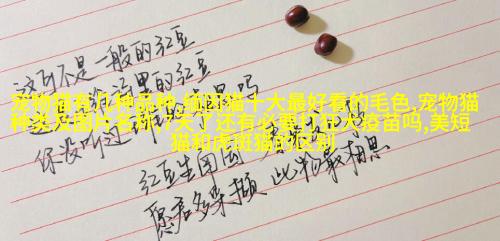 这可不是一般的红豆
里的红豆
宠物猫有几种品种,缅因猫十大最好看的毛色,宠物猫
种类及图片名称,7天了还有必要打狂犬疫苗吗,美短
猫和虎斑猫的区别
你没听过 吗
红豆生南国
愿君多采撷 此物最相思